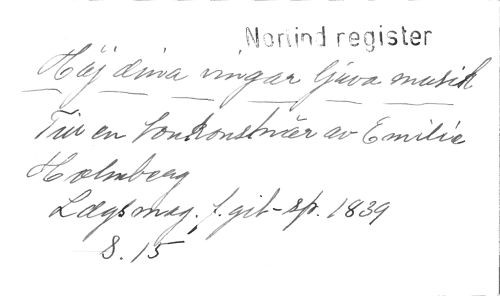 Norlind register
Höj dina vingar ljuva musik
Till en tonkonstnär av Emilie
Holmberg
Ldgs mag. f. git-sp. 1839
S. 15